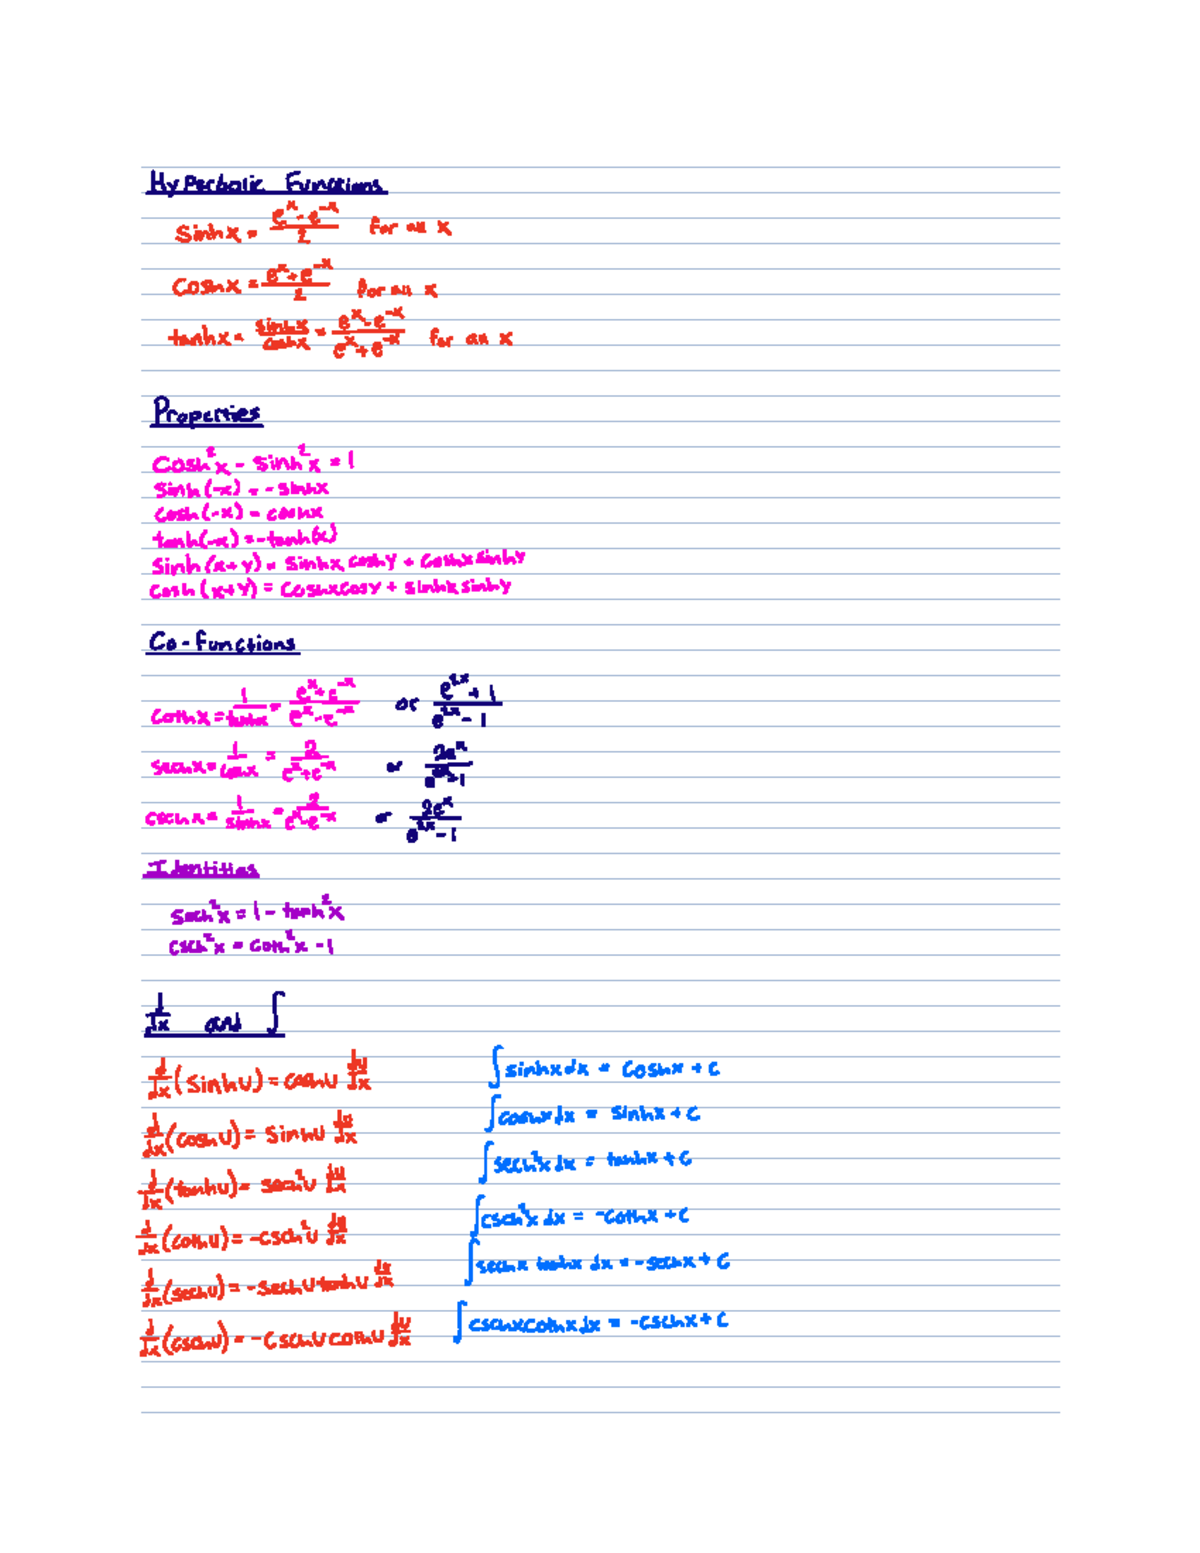 Hyperbolic Functions
sinhx = (e^x - e^-x)/2 for all x
coshx = (e^x + e^-x)/2 for all x
tanhx = sinhx/coshx = (e^x - e^-x)/(e^x + e^-x) for all x
Properties
cosh²x - sinh²x = 1
sinh(-x) = -sinhx
cosh(-x) = coshx
tanh(-x) = -tanh(x)
sinh(x+y) = sinhx coshy + coshx sinhy
cosh(x+y) = coshxcosy + sinhx sinhy
Co-functions
cothx = 1/tanhx = (e^x + e^-x)/(e^x - e^-x) or (e^2x + 1)/(e^2x - 1)
sechx = 1/coshx = 2/(e^x + e^-x) or 2e^x/(e^2x + 1)
cschx = 1/sinhx = 2/(e^x - e^-x) or 2e^x/(e^2x - 1)
Identities
sech²x = 1 - tanh²x
csch²x = coth²x - 1
d/dx and ∫
d/dx(sinhu) = coshu du/dx
d/dx(coshu) = sinhu du/dx
d/dx(tanhu) = sech²u du/dx
d/dx(cothu) = -csch²u du/dx
d/dx(sechu) = -sechu tanhu du/dx
d/dx(cschu) = -cschu cothu du/dx
∫sinhxdx = coshx + c
∫coshxdx = sinhx + c
∫sech²xdx = tanhx + c
∫csch²xdx = -cothx + c
∫sechx tanhx dx = -sechx + c
∫cschxcothxdx = -cschx + c